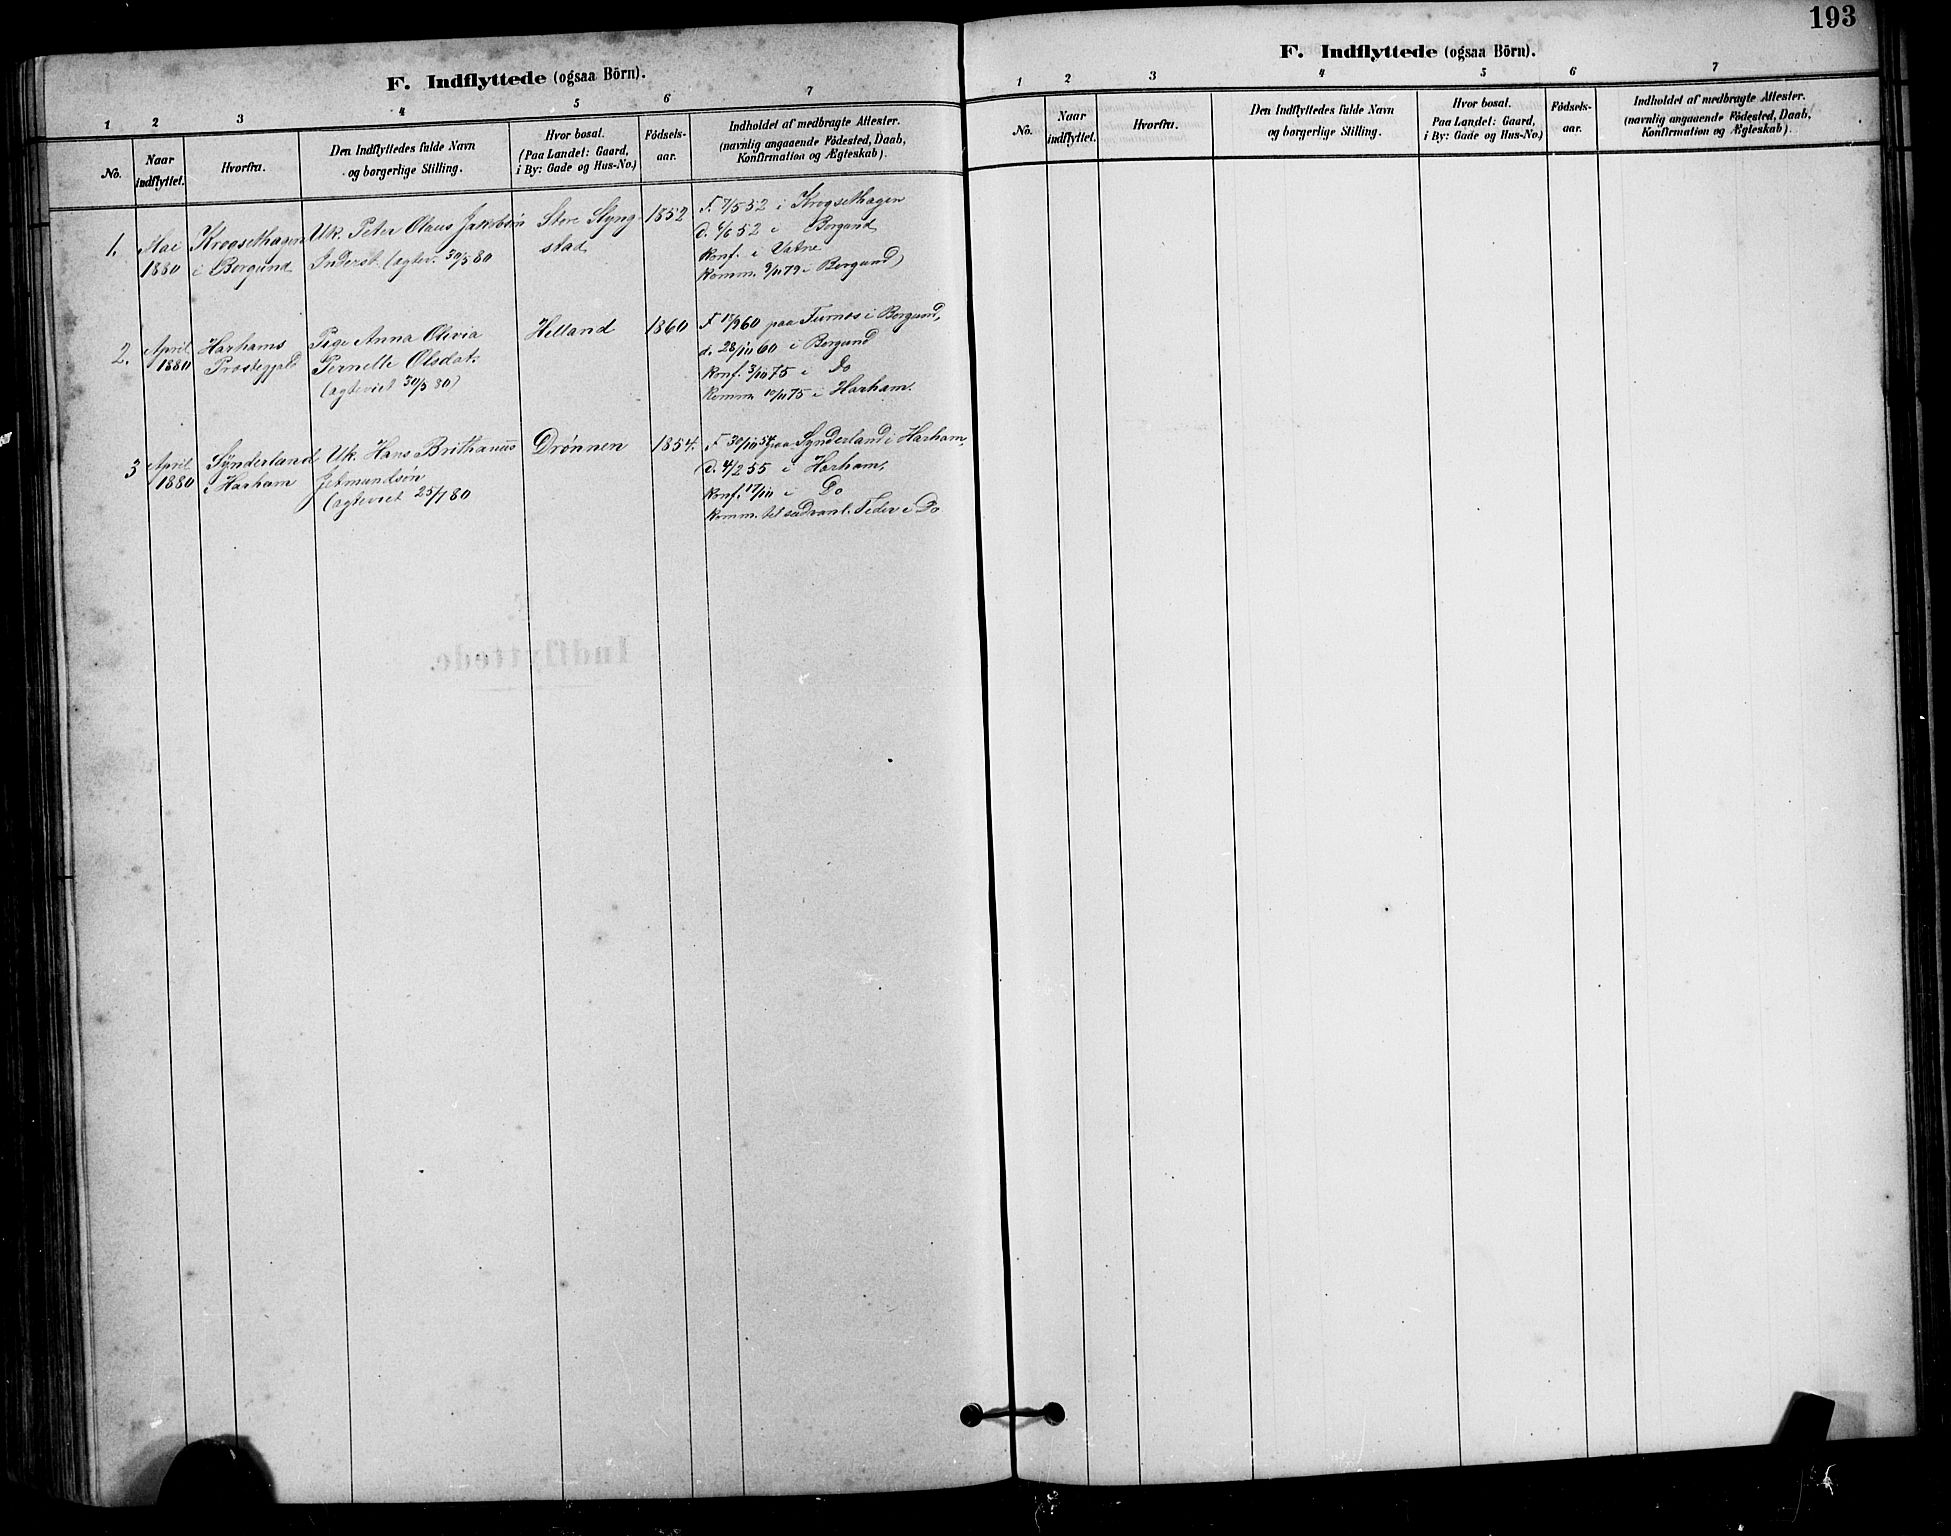 193
F. Indflyttede (ogsaa Börn).
1 2 3 4 5 6 7
No.
Naar indflyttet.
Hvorfra.
Den Indflyttedes fulde Navn
og borgerlige Stilling.
Hvor bosat.
(Paa Landet: Gaard,
i By: Gade og Hus-No.)
Födsels-
aar.
Indholdet af medbragte Attester.
(navnlig angaaende Födested, Daab,
Konfirmation og Ægteskab).
1.
Mai
1880
Krogsethagen
i Borgund
Uk. Peter Olaus Jakobsøn
Inderst (agtev. 30/5 80
Store Slyng-
stad
1852
F. 7/5 52 i Krogsethagen
d. 4/6 52 i Borgund
Konf. i Vatne
Komm. 9/11 79 i Borgund)
2.
April
1880
Harhams
Præstegjæld
Pige Anna Olivia
Pernelle Olsdat.
(agteviet 30/5 80)
Helland
1860
F 17/9 60 paa Furnes i Borgund,
d. 28/10 60 i Borgund
Konf. 3/10 75 i Do
Komm. 10/11 75 i Harham.
3
April
1880
Synderland
i Harham
Uk. Hans Brithanus
Jetmundsøn
(agteviet 25/7 80
Drønnen
1854.
F 30/10 54 paa Synderland i Harham,
d. 4/2 55 i Harham,
Konf. 17/10 i Do
Komm. til sædvanl. Tider i Do
F. Indflyttede (ogsaa Börn).
1 2 3 4 5 6 7
No.
Naar
indflyttet.
Hvorfra.
Den Indflyttedes fulde Navn
og borgerlige Stilling.
Hvor bosat.
Paa Landet: Gaard,
i By: Gade og Hus-No.)
Födsels-
aar.
Indholdet af medbragte Attester.
(navnlig angaaende Födested, Daab,
Konfirmation og Ægteskab).
Indflyttede.